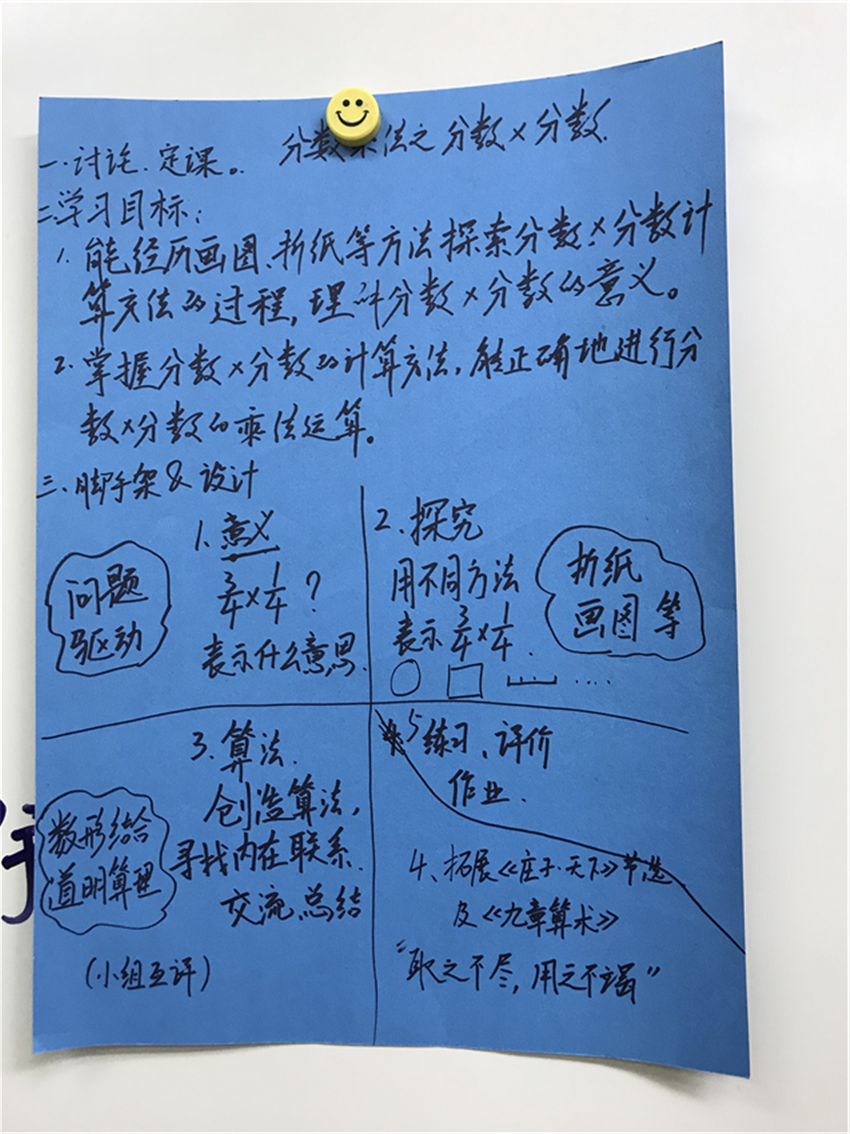 一.讨论.定课。 分数乘法之分数×分数.
二.学习目标:
1. 能经历画图、折纸等方法探索分数×分数计
算方法的过程,理解分数×分数的意义。
2. 掌握分数×分数的计算方法,能正确地进行分
数×分数的乘法运算。
三.脚手架&设计
问题
驱动
1.意义
3/4×1/4?
表示什么意思.
2.探究
用不同方法
表示3/4×1/4.
....
折纸
画图等
3.算法.
创造算法,
寻找内在联系.
交流.总结
数形结合
道明算理
(小组互评)
5练习、评价
作业.
4、拓展《庄子·天下》节选
及《九章算术》
"取之不尽,用之不竭"